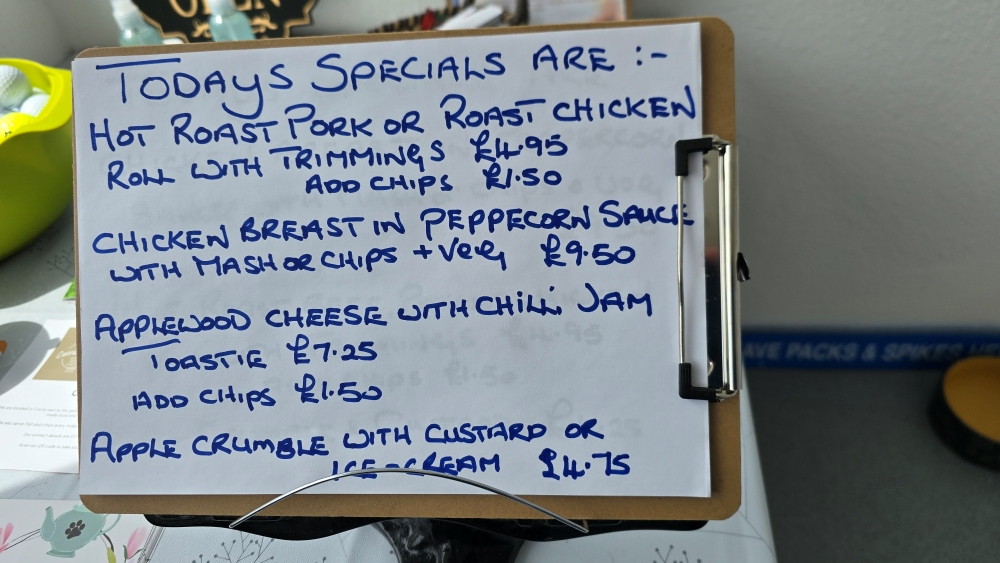 OPEN
TODAYS SPECIALS ARE :-
HOT ROAST PORK OR ROAST CHICKEN
ROLL WITH TRIMMINGS £4.95
ADD CHIPS £1.50
CHICKEN BREAST IN PEPPECORN SAUCE
WITH MASH OR CHIPS + VEG £9.50
APPLEWOOD CHEESE WITH CHILLI JAM
TOASTIE £7.25
ADD CHIPS £1.50
APPLE CRUMBLE WITH CUSTARD OR
ICE-CREAM £4.75
AVE PACKS & SPIKES